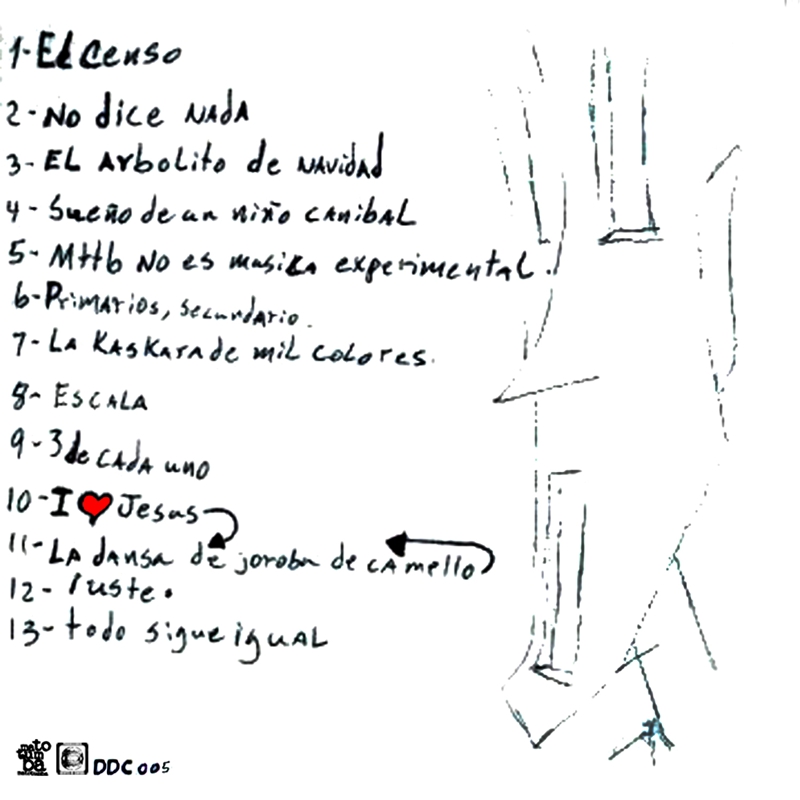 1- El Censo
2- No dice NAdA
3- EL Arbolito de NAViDAd
4- Sueño de un niño CANibAL
5- MHb No es musika experimental.
6- PriMArios, secundario.
7- LA KasKara de mil colores.
8- ESCALA
9- 3 de CAdA uno
10- I ❤ Jesus
11- LA dansa de joroba de cAmello
12- Puste.
13- todo sigue iguAL
DDC 005